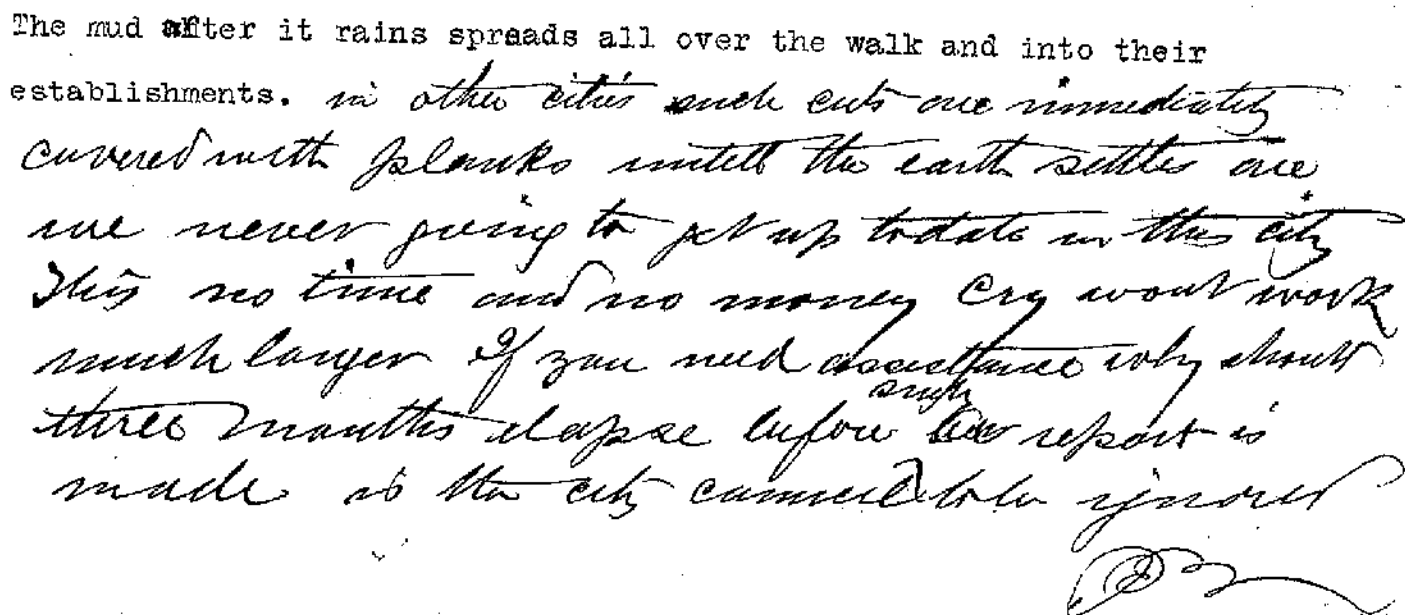 The mud after it rains spreads all over the walk and into their
establishments. in other cities such cuts are immediately
covered with planks untill the earth settles are
we never going to get up to date in this city
This no time and no money cry wont work
much longer If you need assistance why should
three months elapse before such report is
made is the city council to be ignored